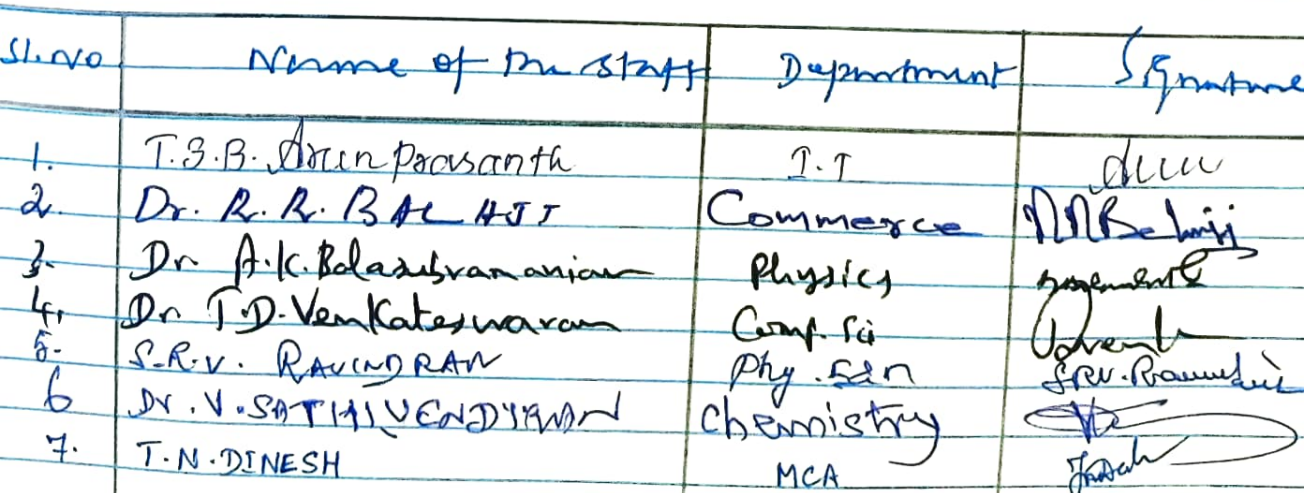 Sl.No Name of the Staff Department Signature
1. T.S.B. Arun Prasanth I.T Arun
2. Dr. R. R. BALAJI Commerce RRBalaji
3. Dr A.K. Balasubramanian Physics
4. Dr T.D. Venkateswaran Comp. Sci
5. S.R.V. RAVINDRAN Phy. Edn SRV. Ravindran
6 Dr. V. Chemistry
7. T.N. DINESH MCA